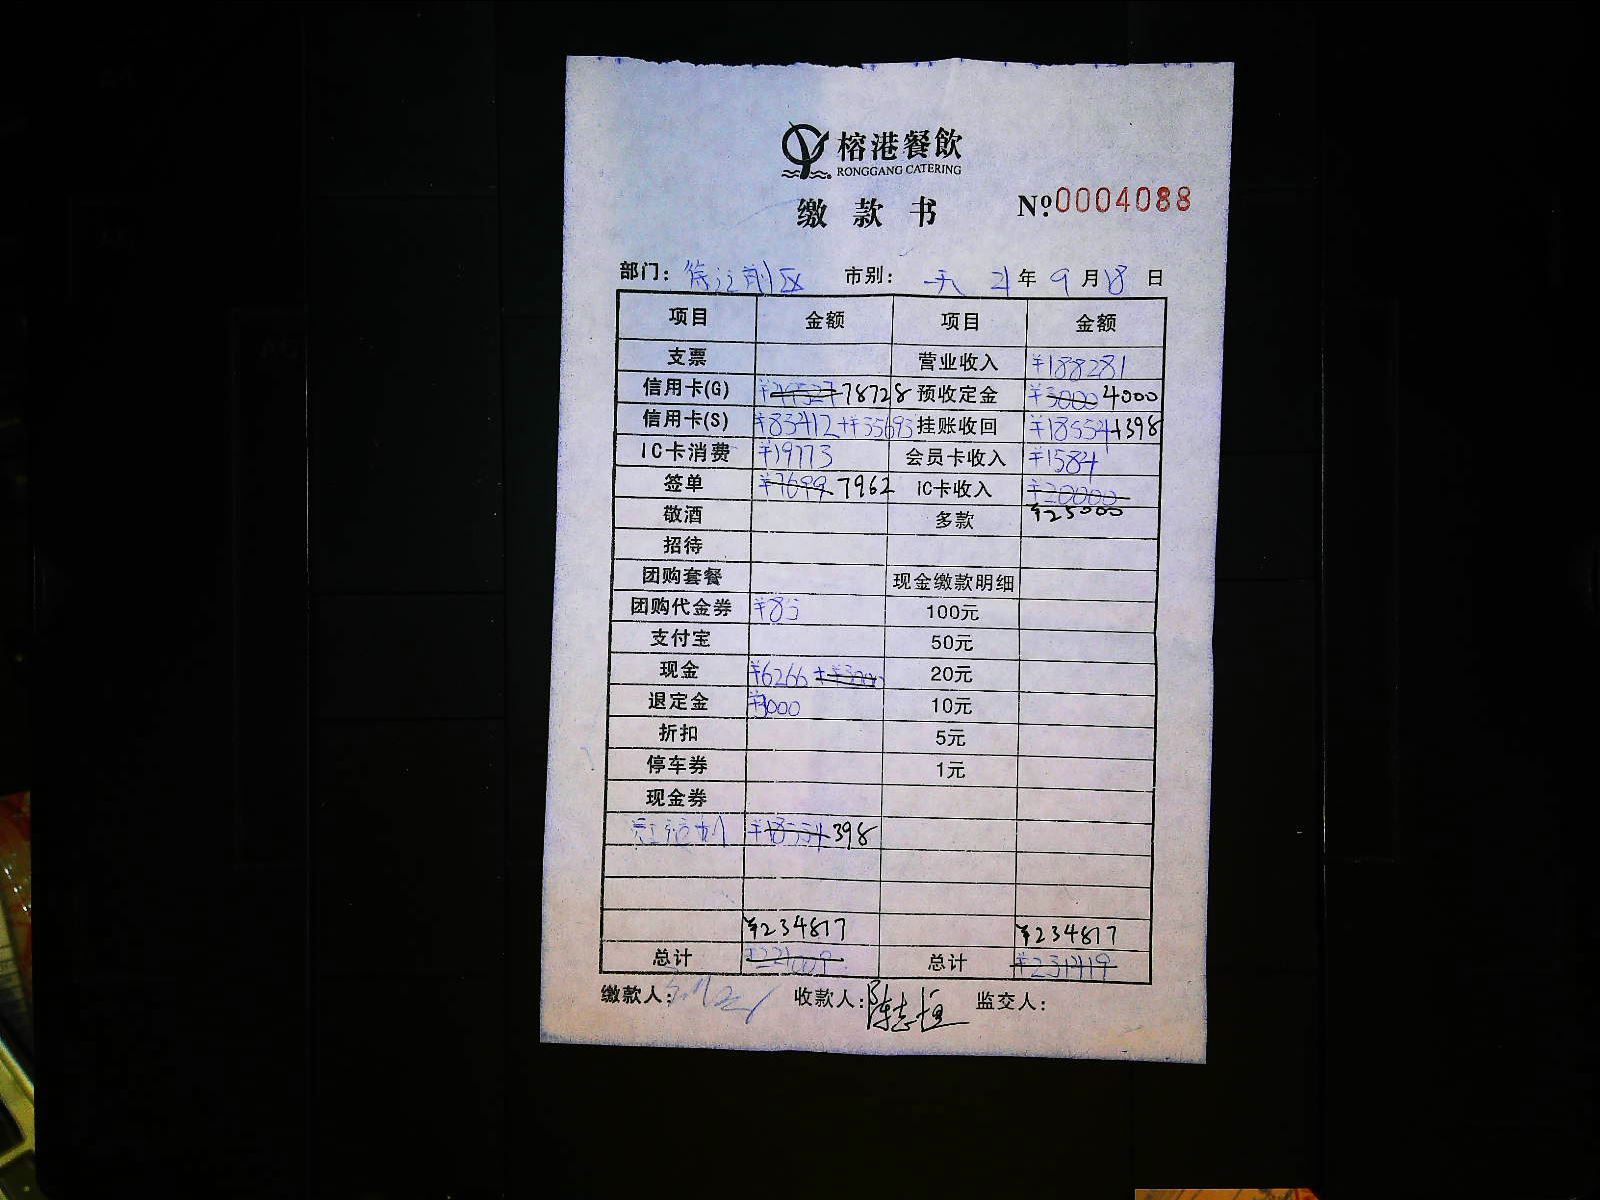 榕港餐飲
RONGGANG CATERING
缴款书 Nº:0004088
部门: 市别: 21年 9月18日
项目 金额 项目 金额
支票 营业收入 ¥188281
信用卡(G) 78728 预收定金 ¥3000 4000
信用卡(S) ¥83412+¥35193 挂账收回 ¥15554+398
IC卡消费 ¥19773 会员卡收入 ¥1584
签单 ¥7699 7962 IC卡收入 ¥20000
敬酒 多款 ¥25000
招待
团购套餐 现金缴款明细
团购代金券 ¥85 100元
支付宝 50元
现金 ¥6266+¥3000 20元
退定金 ¥3000 10元
折扣 5元
停车券 1元
现金券
398
¥234817 ¥234817
总计 总计 ¥231419
缴款人: 收款人:陈志恒 监交人: